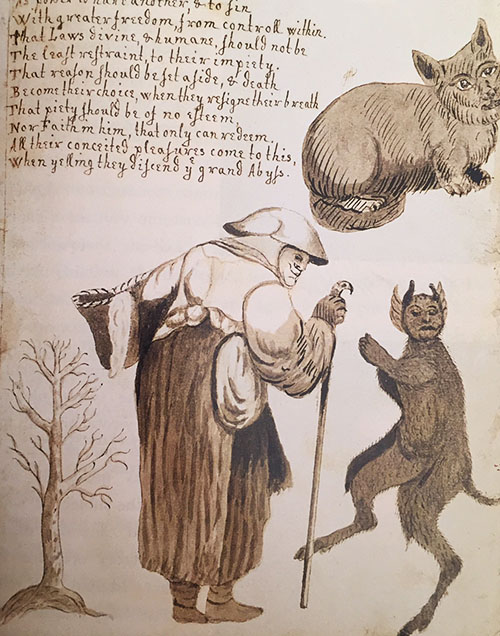 another, & to sin
With greater freedom, from controll within.
That Laws divine, & humane, should not be
The least restraint, to their impiety.
That reason should be set aside, & death
Become their choice, when they resigne their breath
That piety should be of no esteem,
Nor Faith in him, that only can redeem
All their conceited pleasures come to this,
When yelling they discend yᵉ grand Abyss.